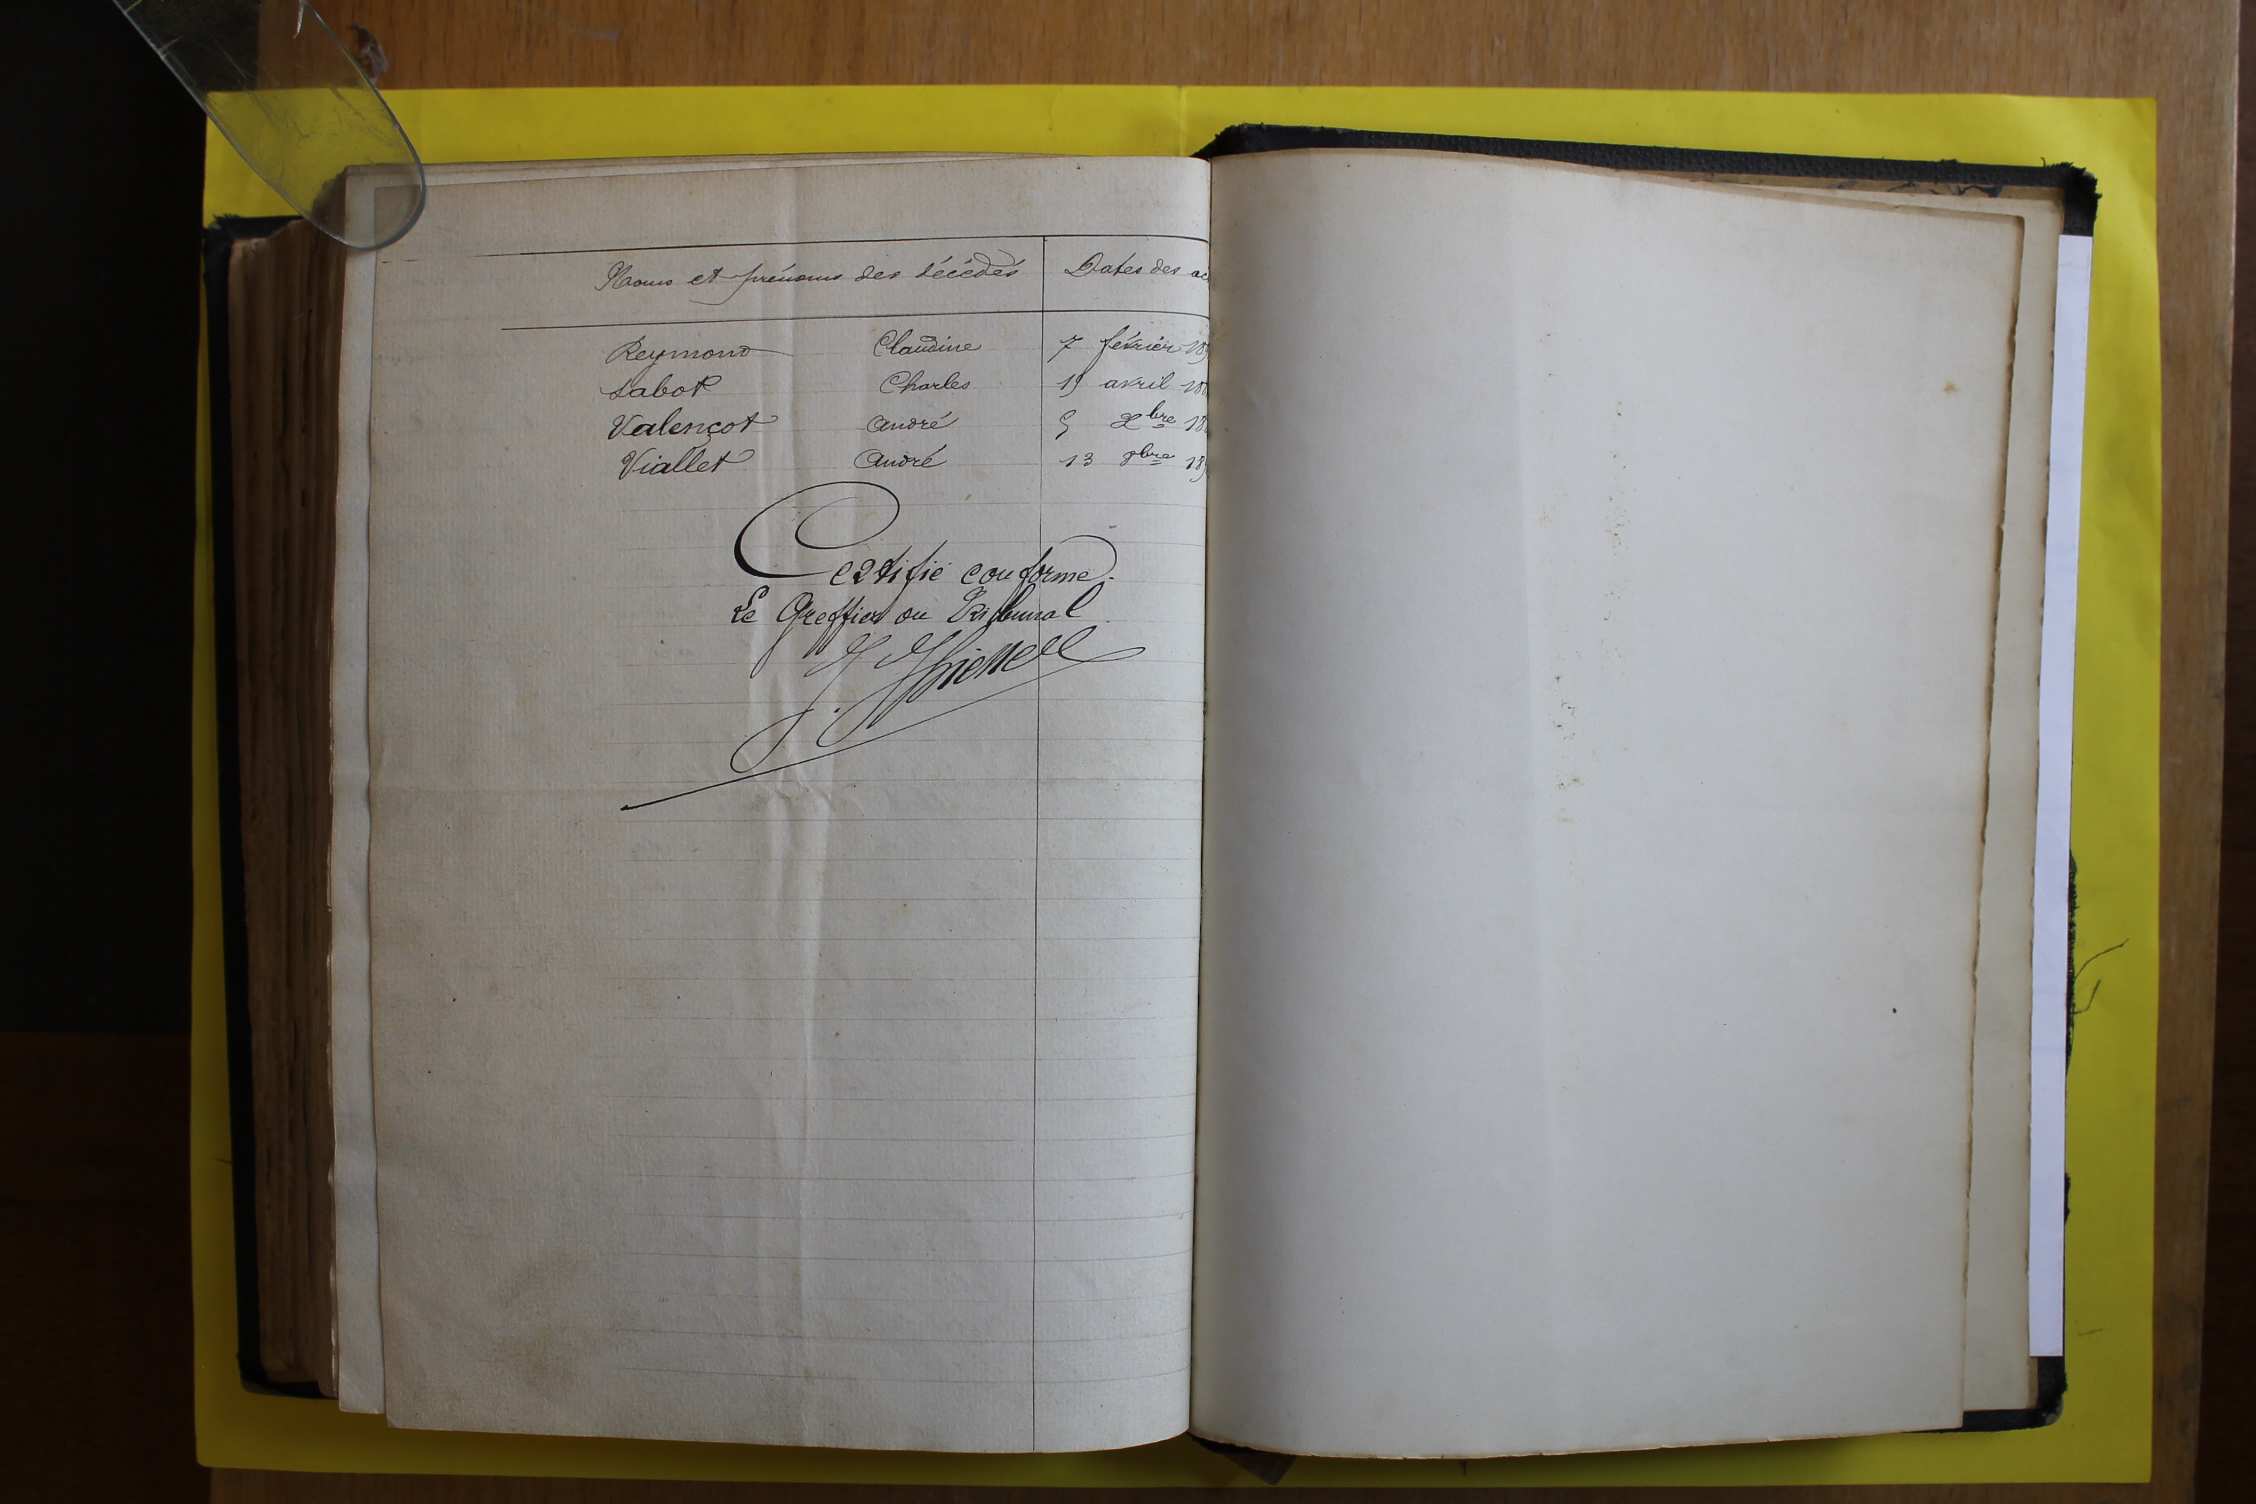 Noms et prénoms des décédés Dates des ac
Reymond Claudine 7 février 18
Sabot Charles 19 avril 188
Valençot André 5 Xbre 18
Viallet André 13 8bre 189
Certifié conforme.
Le Greffier du Tribunal